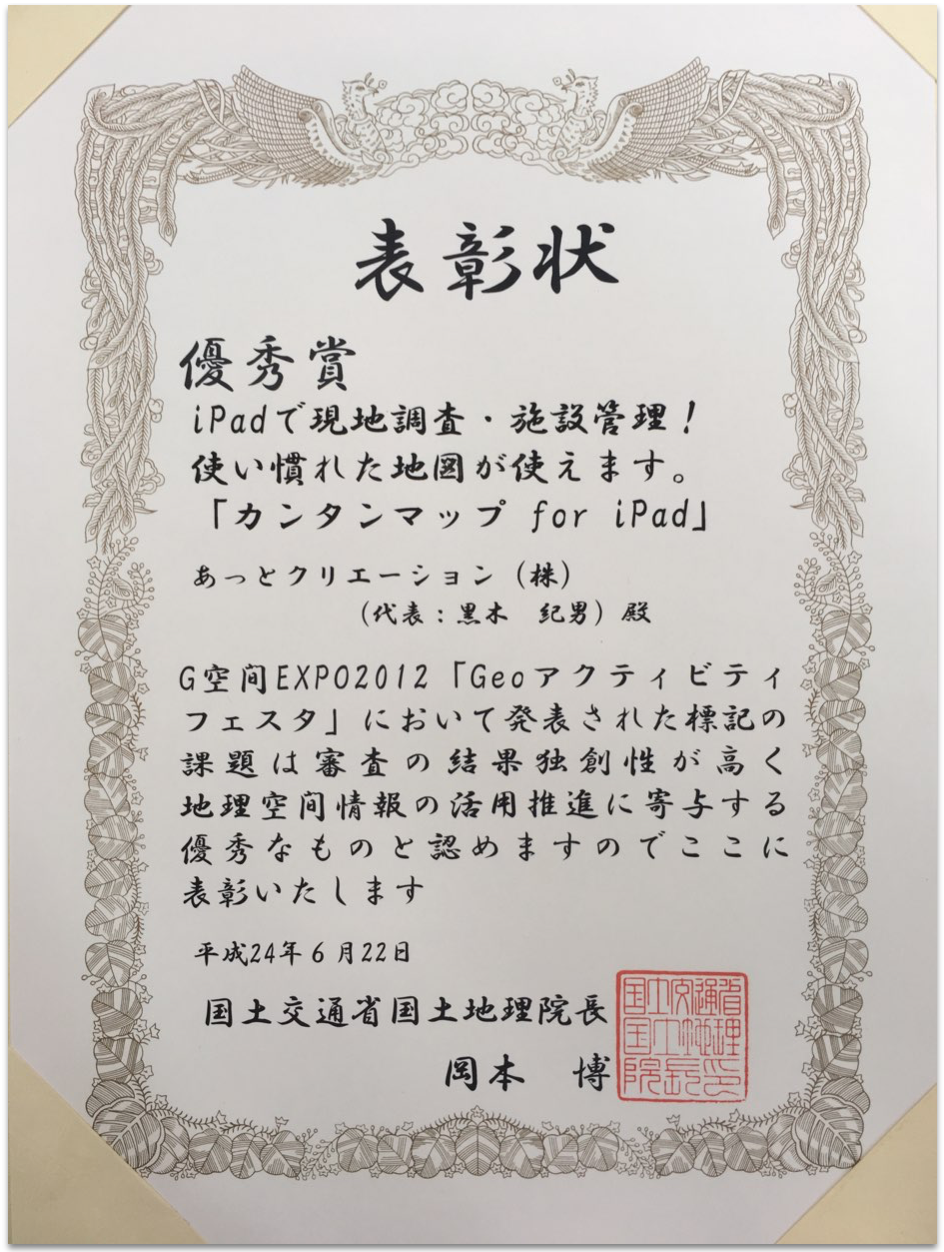 表彰状
優秀賞
iPadで現地調査・施設管理!
使い慣れた地図が使えます。
「カンタンマップ for iPad」
あっとクリエーション(株)
(代表:黒木 紀男)殿
G空間EXPO2012「Geoアクティビティ
フェスタ」において発表された標記の
課題は審査の結果独創性が高く
地理空間情報の活用推進に寄与する
優秀なものと認めますのでここに
表彰いたします
平成24年6月22日
国土交通省国土地理院長
岡本 博
国土交通省
国土地理
院長之印